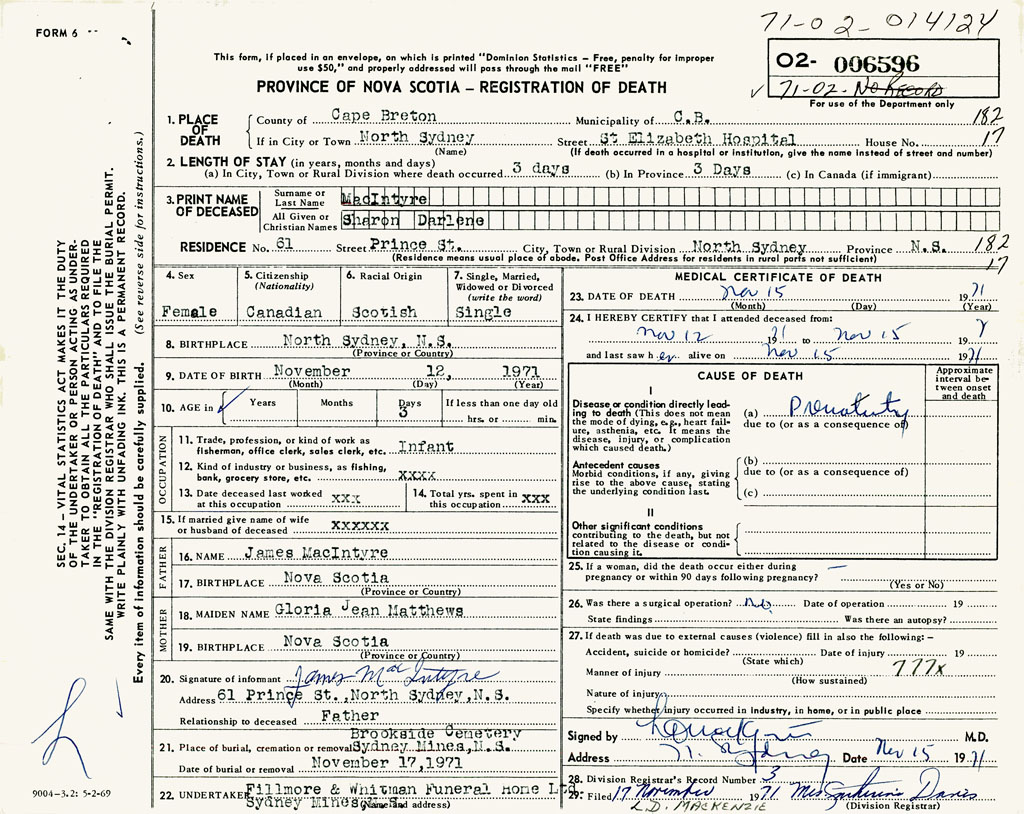 FORM 6
71-02-014124
This form, if placed in an envelope, on which is printed "Dominion Statistics – Free, penalty for improper
use $50," and properly addressed will pass through the mail "FREE"
PROVINCE OF NOVA SCOTIA – REGISTRATION OF DEATH
02- 006596
71-02- No Record
For use of the Department only
1. PLACE OF DEATH
County of Cape Breton Municipality of C.B. 182
If in City or Town North Sydney Street St Elizabeth Hospital House No. 17
(Name) (If death occurred in a hospital or institution, give the name instead of street and number)
2. LENGTH OF STAY (in years, months and days)
(a) In City, Town or Rural Division where death occurred 3 days (b) In Province 3 Days (c) In Canada (if immigrant)
3. PRINT NAME OF DECEASED
Surname or Last Name MacIntyre
All Given or Christian Names Sharon Darlene
RESIDENCE No. 61 Street Prince St. City, Town or Rural Division North Sydney Province N.S. 182
(Residence means usual place of abode. Post Office Address for residents in rural parts not sufficient) 17
4. Sex
Female
5. Citizenship
(Nationality)
Canadian
6. Racial Origin
Scotish
7. Single, Married,
Widowed or Divorced
(write the word)
Single
8. BIRTHPLACE North Sydney, N.S.
(Province or Country)
9. DATE OF BIRTH November 12, 1971
(Month) (Day) (Year)
10. AGE in Years Months Days If less than one day old
3 hrs. or min.
OCCUPATION
11. Trade, profession, or kind of work as
fisherman, office clerk, sales clerk, etc. Infant
12. Kind of industry or business, as fishing,
bank, grocery store, etc. XXXX
13. Date deceased last worked
at this occupation XXX
14. Total yrs. spent in
this occupation XXX
15. If married give name of wife
or husband of deceased XXXXXX
FATHER
16. NAME James MacIntyre
17. BIRTHPLACE Nova Scotia
(Province or Country)
MOTHER
18. MAIDEN NAME Gloria Jean Matthews
19. BIRTHPLACE Nova Scotia
(Province or Country)
20. Signature of informant James MacIntyre
Address 61 Prince St., North Sydney, N.S.
Relationship to deceased Father
Brookside Cemetery
21. Place of burial, cremation or removal Sydney Mines, N.S.
Date of burial or removal November 17,1971
22. UNDERTAKER Fillmore & Whitman Funeral Home Ltd
Sydney Mines (Name and address)
MEDICAL CERTIFICATE OF DEATH
23. DATE OF DEATH Nov 15 1971
(Month) (Day) (Year)
24. I HEREBY CERTIFY that I attended deceased from:
Nov 12 1971 to Nov 15
and last saw her alive on Nov 15 1971
CAUSE OF DEATH
Approximate
interval be-
tween onset
and death
I
Disease or condition directly lead-
ing to death (This does not mean
the mode of dying, e.g., heart fail-
ure, asthenia, etc. It means the
disease, injury, or complication
which caused death.)
(a) Prematurity
due to (or as a consequence of)
Antecedent causes
Morbid conditions, if any, giving
rise to the above cause, stating
the underlying condition last.
(b)
due to (or as a consequence of)
(c)
II
Other significant conditions
contributing to the death, but not
related to the disease or condi-
tion causing it.
25. If a woman, did the death occur either during
pregnancy or within 90 days following pregnancy? —
(Yes or No)
26. Was there a surgical operation? No Date of operation 19
State findings Was there an autopsy?
27. If death was due to external causes (violence) fill in also the following: –
Accident, suicide or homicide? Date of injury 19
(State which)
Manner of injury 777x
(How sustained)
Nature of injury
Specify whether injury occurred in industry, in home, or in public place
Signed by M.D.
Address N. Sydney Date Nov 15 1971
28. Division Registrar's Record Number 3
29. Filed 17 November 1971 Mrs Davis
L.D. MACKENZIE (Division Registrar)
SEC. 14 – VITAL STATISTICS ACT MAKES IT THE DUTY
OF THE UNDERTAKER OR PERSON ACTING AS UNDER-
TAKER TO OBTAIN ALL THE PARTICULARS REQUIRED
IN THE "REGISTRATION OF DEATH" AND TO FILE THE
SAME WITH THE DIVISION REGISTRAR WHO SHALL ISSUE THE BURIAL PERMIT.
WRITE PLAINLY WITH UNFADING INK. THIS IS A PERMANENT RECORD.
Every item of information should be carefully supplied. (See reverse side for instructions.)
9004-3.2: 5-2-69